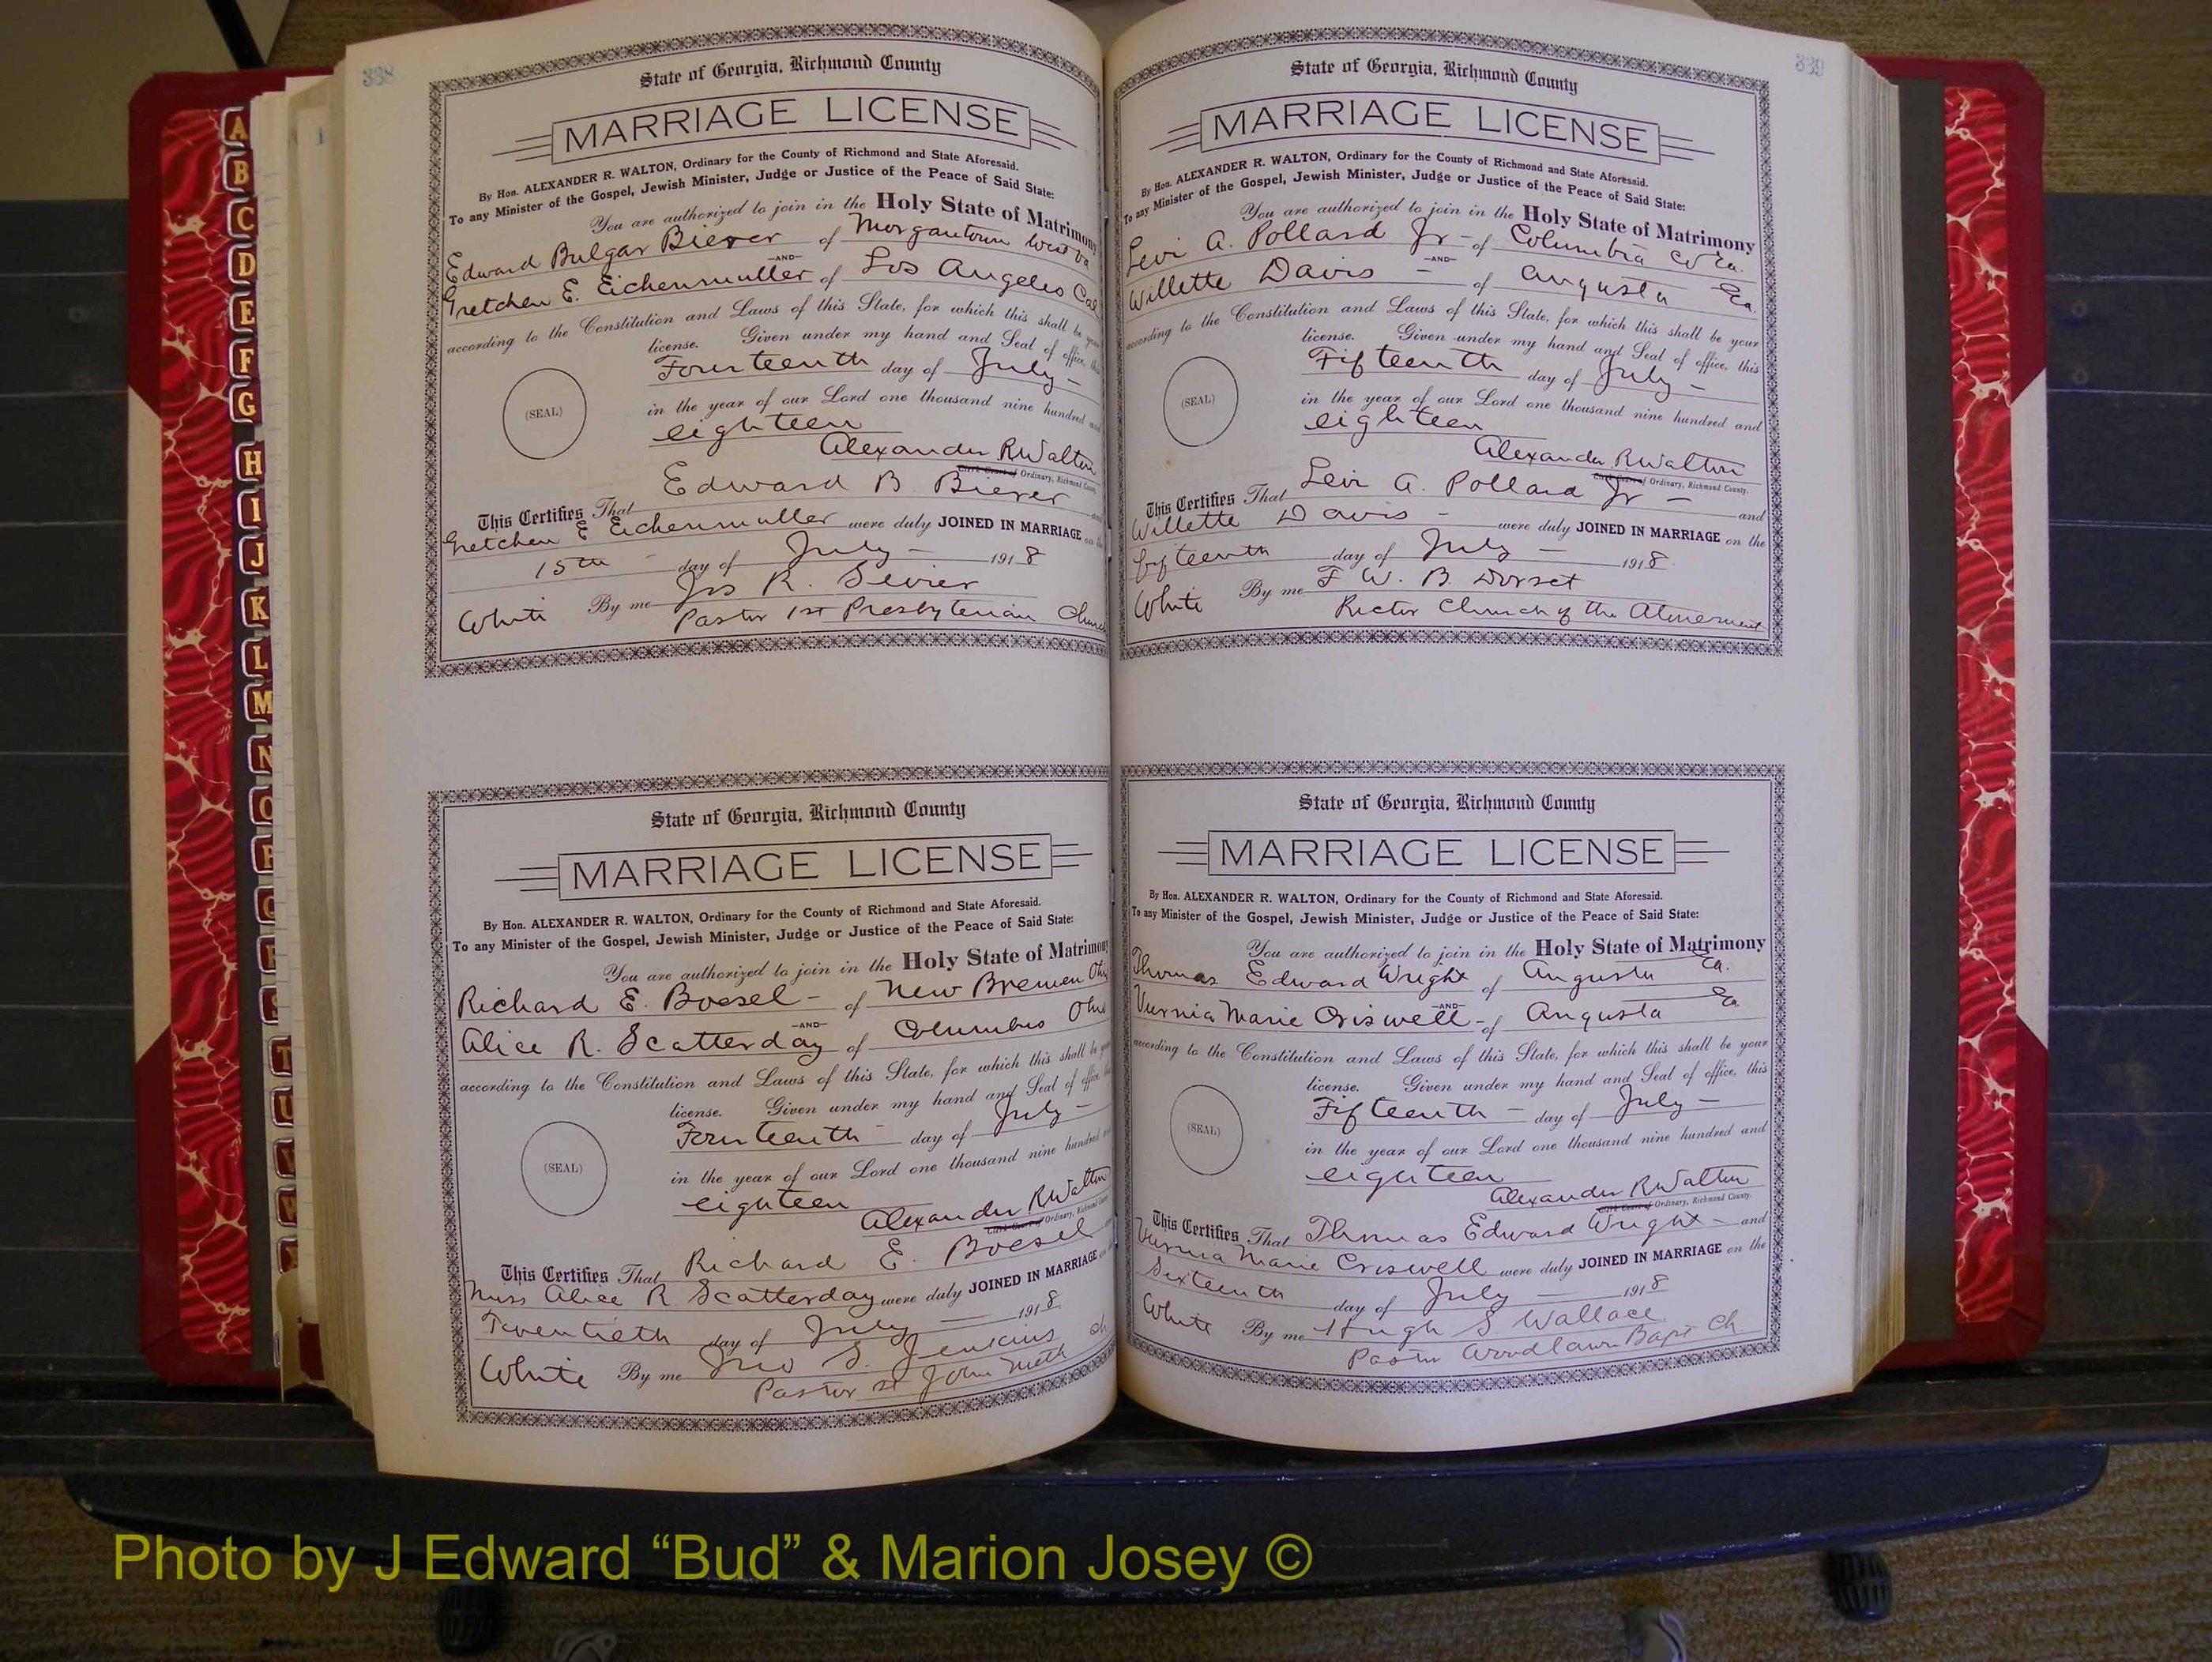 338
State of Georgia, Richmond County
MARRIAGE LICENSE
By Hon. ALEXANDER R. WALTON, Ordinary for the County of Richmond and State Aforesaid.
To any Minister of the Gospel, Jewish Minister, Judge or Justice of the Peace of Said State:
You are authorized to join in the Holy State of Matrimony
Edward Bulgar Bierer of Morgantown West Va
—AND—
Gretchen E. Eichenmuller of Los Angeles Cal
according to the Constitution and Laws of this State, for which this shall be your
license. Given under my hand and Seal of office, this
Fourteenth day of July –
(SEAL)
in the year of our Lord one thousand nine hundred and
eighteen
Alexander R Walton
Clerk Court of Ordinary, Richmond County.
This Certifies That Edward B Bierer and
Gretchen E Eichenmuller were duly JOINED IN MARRIAGE on the
15th – day of July – 1918
White By me Jos R. Sevier
Pastor 1st Presbyterian Church
State of Georgia, Richmond County
MARRIAGE LICENSE
By Hon. ALEXANDER R. WALTON, Ordinary for the County of Richmond and State Aforesaid.
To any Minister of the Gospel, Jewish Minister, Judge or Justice of the Peace of Said State:
You are authorized to join in the Holy State of Matrimony
Richard E. Boesel – of New Bremen Ohio
—AND—
Alice R. Scatterday of Columbus Ohio
according to the Constitution and Laws of this State, for which this shall be your
license. Given under my hand and Seal of office, this
Fourteenth – day of July –
(SEAL)
in the year of our Lord one thousand nine hundred and
eighteen
Alexander R Walton
Clerk Court of Ordinary, Richmond County
This Certifies That Richard E. Boesel
Miss Alice R Scatterday were duly JOINED IN MARRIAGE on the
Twentieth day of July – 1918
White By me Jno S. Jenkins
Pastor St John Meth ch
339
State of Georgia, Richmond County
MARRIAGE LICENSE
By Hon. ALEXANDER R. WALTON, Ordinary for the County of Richmond and State Aforesaid.
To any Minister of the Gospel, Jewish Minister, Judge or Justice of the Peace of Said State:
You are authorized to join in the Holy State of Matrimony
Levi A. Pollard Jr – of Columbia Co Ga.
—AND—
Willette Davis – of Augusta Ga.
according to the Constitution and Laws of this State, for which this shall be your
license. Given under my hand and Seal of office, this
Fifteenth day of July –
(SEAL)
in the year of our Lord one thousand nine hundred and
eighteen
Alexander R Walton
Clerk Court of Ordinary, Richmond County.
This Certifies That Levi A. Pollard Jr – and
Willette Davis – were duly JOINED IN MARRIAGE on the
fifteenth day of July – 1918
White By me F W. B. Dorset
Rector Church of the Atonement
State of Georgia, Richmond County
MARRIAGE LICENSE
By Hon. ALEXANDER R. WALTON, Ordinary for the County of Richmond and State Aforesaid.
To any Minister of the Gospel, Jewish Minister, Judge or Justice of the Peace of Said State:
You are authorized to join in the Holy State of Matrimony
Thomas Edward Wright of Augusta Ga.
—AND—
Vurnia Marie Criswell – of Augusta Ga
according to the Constitution and Laws of this State, for which this shall be your
license. Given under my hand and Seal of office, this
Fifteenth – day of July –
(SEAL)
in the year of our Lord one thousand nine hundred and
eighteen
Alexander R Walton
Clerk Court of Ordinary, Richmond County.
This Certifies That Thomas Edward Wright – and
Vurnia Marie Criswell were duly JOINED IN MARRIAGE on the
Sixteenth day of July – 1918
White By me Hugh S Wallace
Pastor Woodlawn Bapt Ch.
A
B
C
D
E
F
G
H
I
J
K
L
M
N
O
P
Q
R
S
T
U
V
W
Photo by J Edward “Bud” & Marion Josey ©